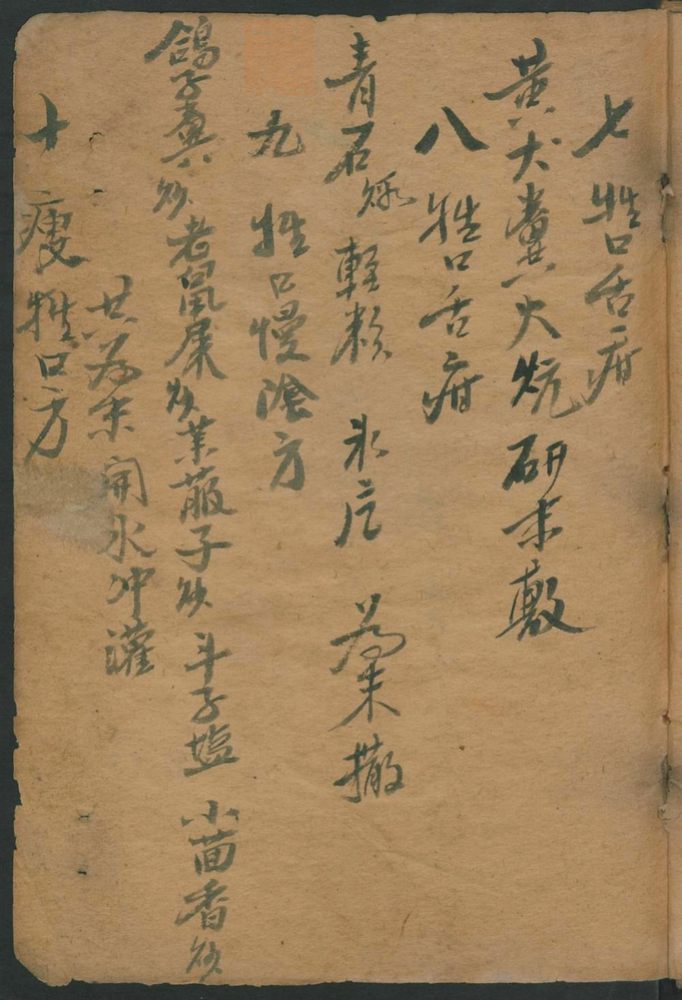 七 牲口舌疳
黄犬糞火炕研末敷
八 牲口舌疳
青石 輕粉 氷片 為末撒
九 牲口慢陰方
鴿子糞炒 老鼠屎炒 莱菔子炒 斗子塩 小茴香炒
共为末開水冲灌
十 瘦牲口方